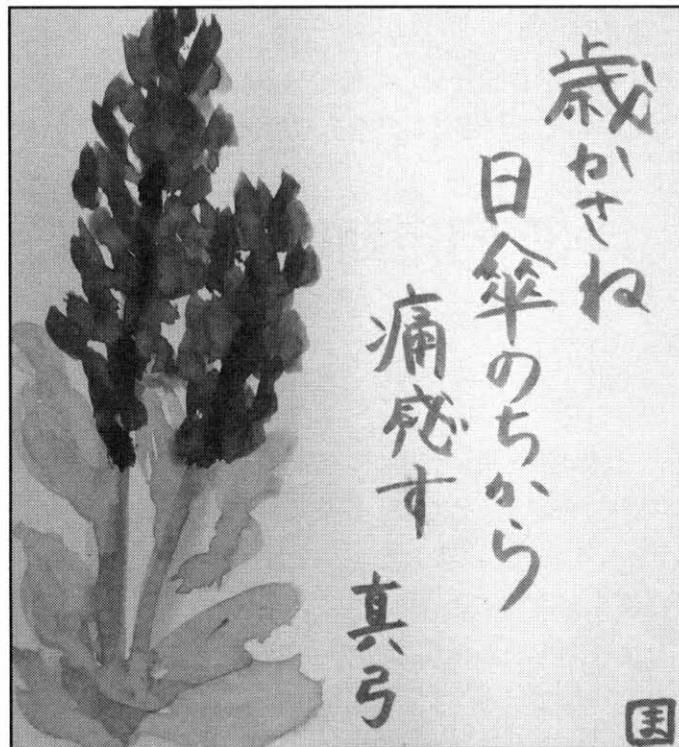 歳かさね
日傘のちから
痛感す
真弓
ま